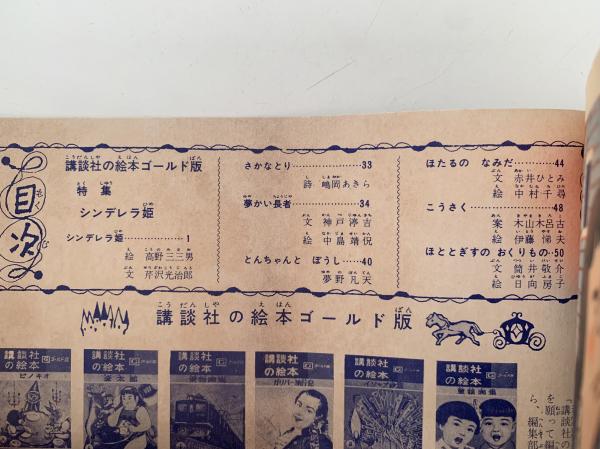 目次
講談社の絵本ゴールド版
特集
シンデレラ姫
シンデレラ姫………1
絵 高野三三男
文 芹沢光治郎
さかなとり………33
詩 嶋岡あきら
夢かい長者………34
文 神戸淳吉
絵 中島靖侃
とんちゃんと ぼうし…40
夢野凡天
ほたるの なみだ………44
文 赤井ひとみ
絵 中村千尋
こうさく………48
案 木山木呂古
絵 伊藤悌夫
ほととぎすの おくりもの…50
文 筒井敬介
絵 日向房子
講談社の絵本ゴールド版
講談社の絵本
ピノキオ
講談社の絵本
金太郎
講談社の絵本
講談社の絵本
ガリバー旅行記
講談社の絵本
イソップ
講談社の絵本
童謡画集
「講談社の
を願って編
ら、編集部